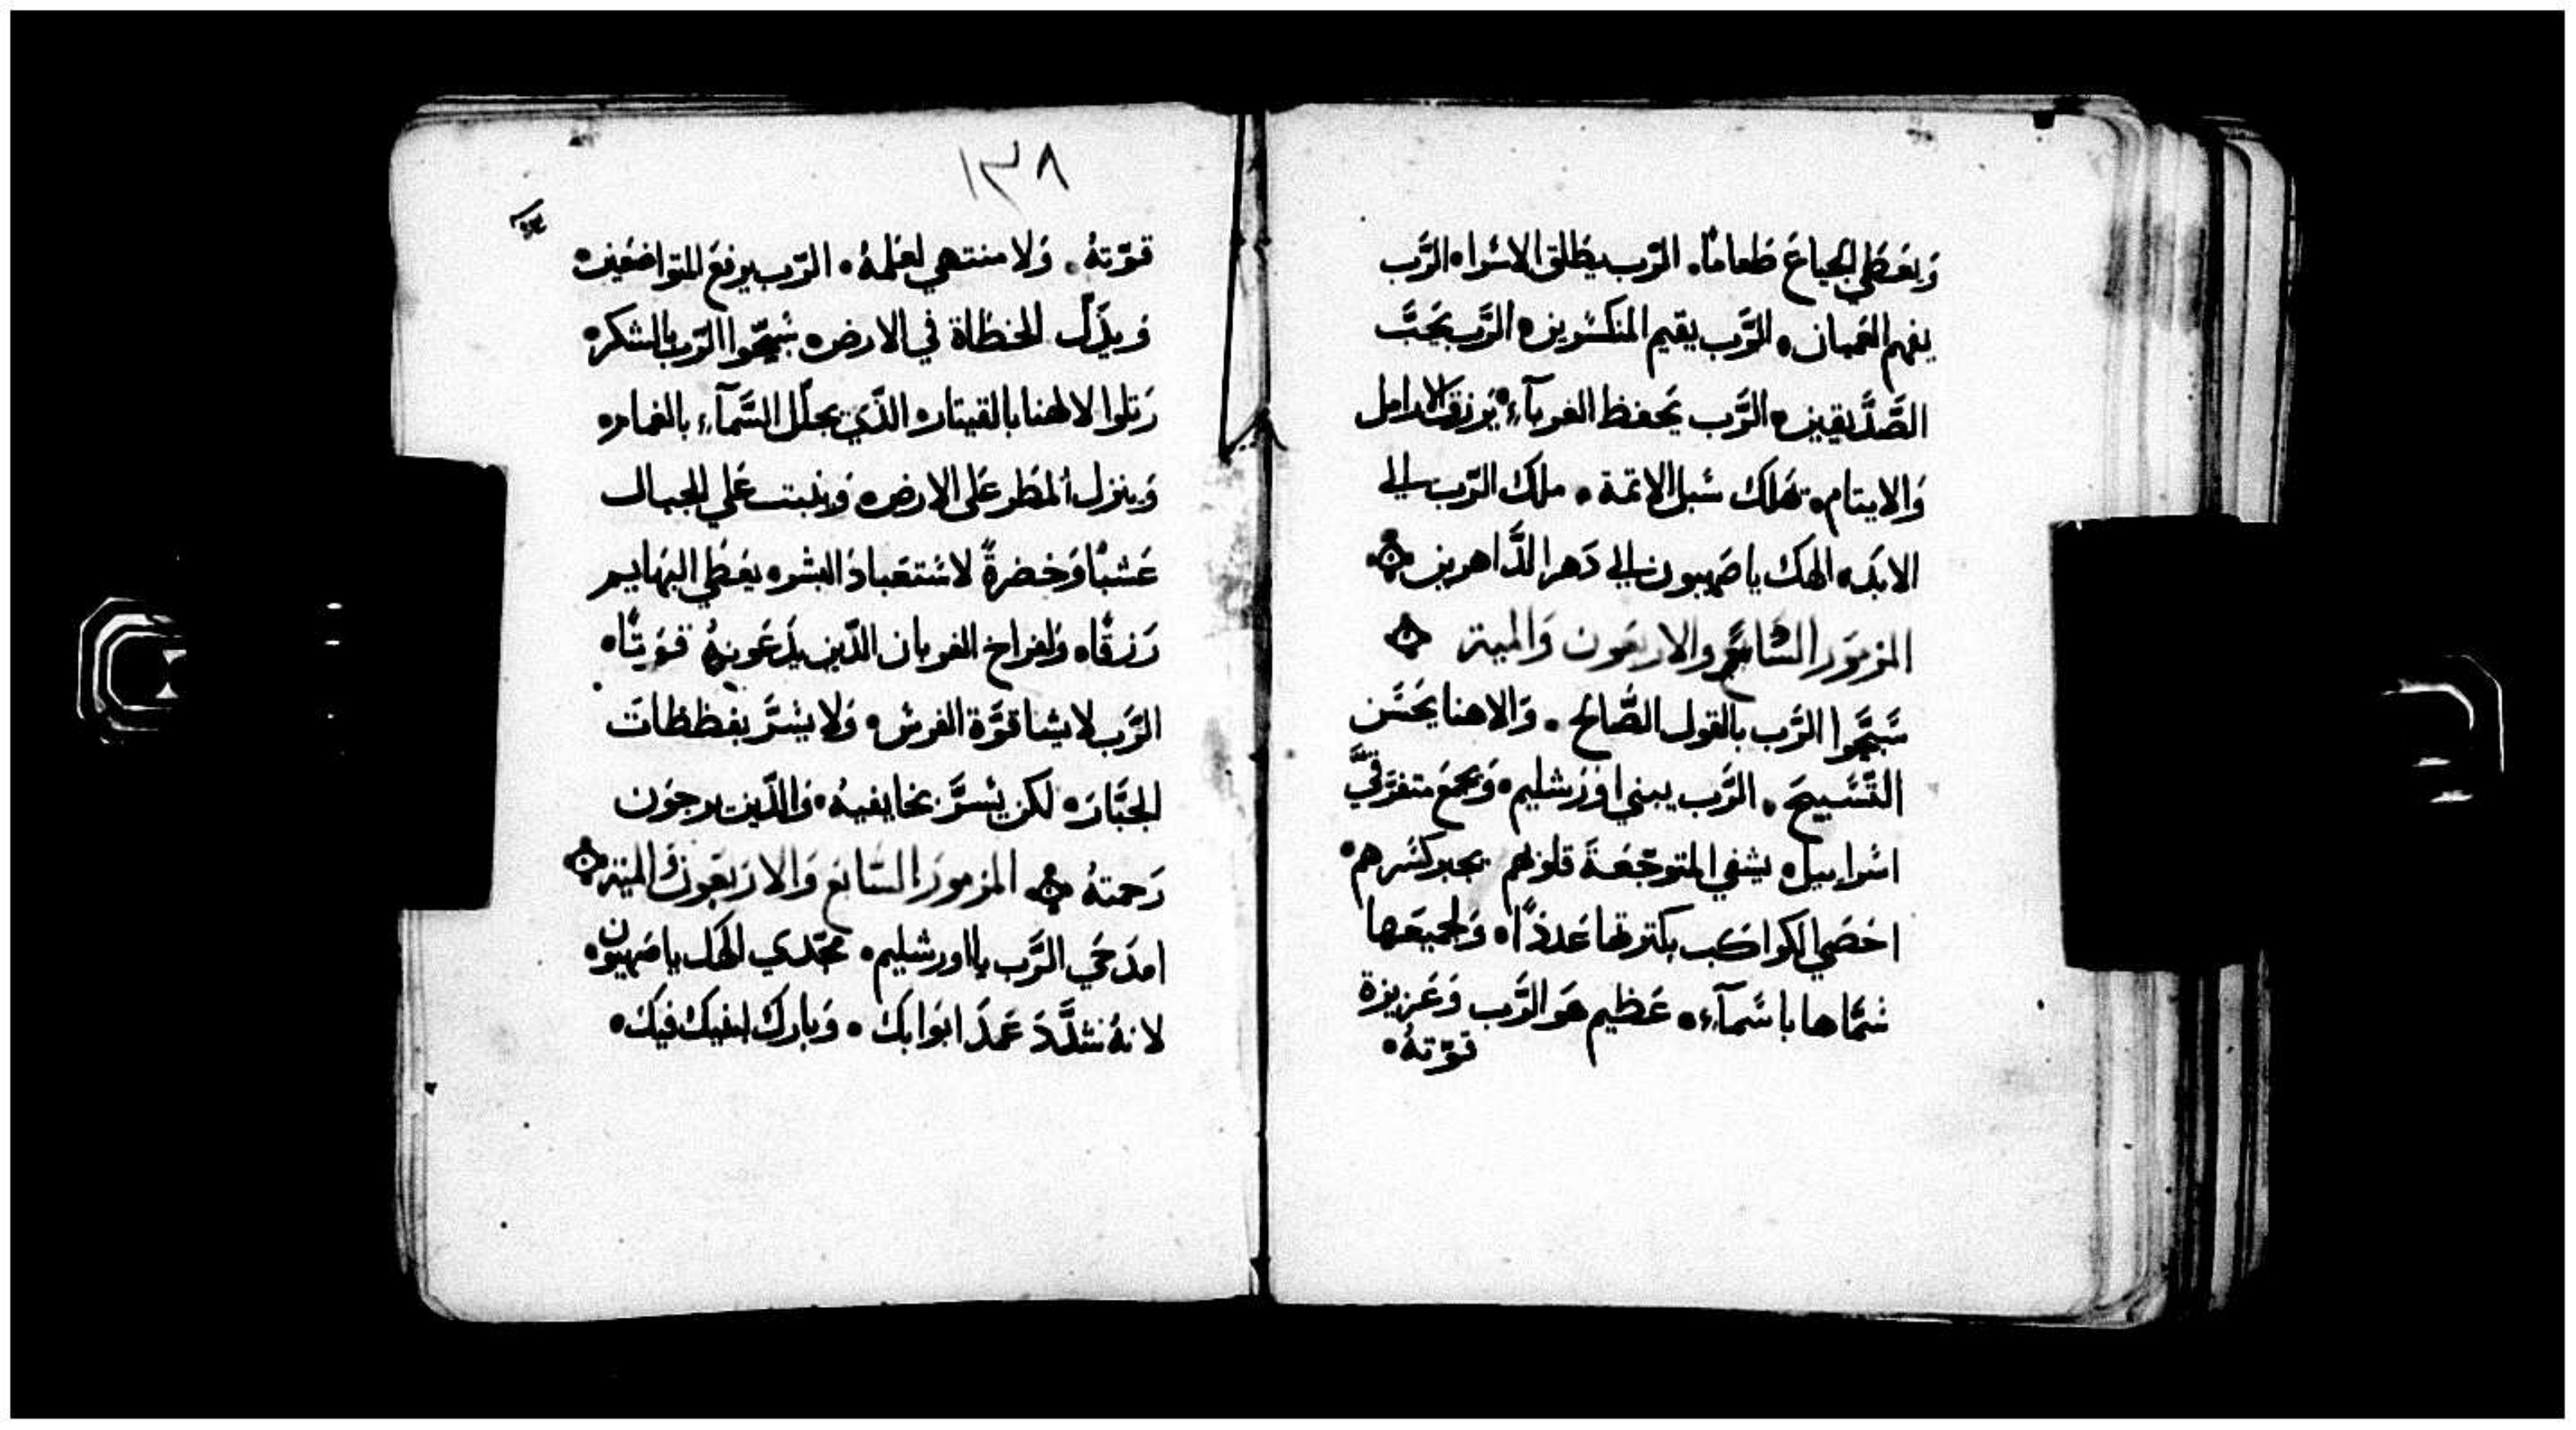 وَيعَطي الجياعَ طعامًا. الرَّب يطلق الاسَرا. الرَّب
يفهم العَميان. الرَّب يقيم المنكسَرين. الرَّب يحَبَّ
الصَّدَّيقين. الرَّب يَحفظ الغربآء. يَرزق الارامل
وَالايتام. تهَلك سَبل الاتمة. ملك الرّب الي
الابَد. الهَك ياصَهيون الي دَهر الدَّاهرين
المزمَور السَّادسَ والاربعَون وَالمية
سَبَّحَوا الرَّب بالقول الصَّالح. وَالاهنا يحَسَن
التَّسَبيحَ. الرَّب يبني اورَشليم. وَيجمَع متفرَّقيَّ
اسَراييل. يشفي المتوجَّعَةَ قلوبَهم يجبر كسَرهم.
احَصَي الكواكَب بكترتها عَددًا. وَلجميعَها
سَمَّاها باسَمآء. عَظيم هَو الرَّب وَعَزيزة
قوّتهُ.
١٣٨
قوّتهُ. وَلا منتهي لعَلمهُ. الرَّب يرفعَ المتواضعَين
وَيذَلّ الخطاة في الارض. سَبحّوا الرّب بالشكر.
رَتلوا لالهنا بالقيتار. الذَّي يجلَّل السَّمآء بالغمام.
وَينزل المَطر عَلي الارض. وَينبت عَلي الجبال
عَشبًا وَخضرةً لاسَتعَباد البشر. يعَطي البَهايم
رَزقًا. وَلفراخ الغربان الذَّين يدَعَونهُ قوَتًا.
الرَّب لا يشا قوَّة الفرسَ. وَلا يسَرَّ بفظظات
الجبَّارَ. لكن يسَرَّ بخايفيهُ. وَالذَّين يرجَون
رَحمتهُ المزمورَ السَّابع وَالارَبعَون وَالمية
امدَحَي الرَّب يا اورشليم. مجَّدي الهَك ياصَهيون.
لانهُ شدَّدَ عَمدَ ابوَابك. وَبارك بنيك فيك.